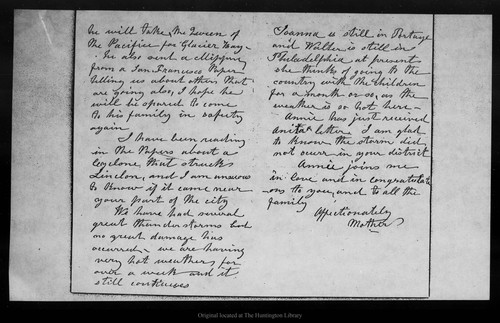 he will take the Queen of
the Pacific for Glacier Bay-
he also sent a clipping
from a San Francisco Paper
telling us about others that
are going also, I hope he
will be spared to come
to his family in safety
again
I have been reading
in the Papers about a
Cyclone that struck
Lincoln, and I am anxious
to know if it came near
your part of the city
We have had several
great thunderstorms but
no great damage has
occurred- we are having
very hot weather for
over a week and it
still continues
Joanna is still in Portage
and Walter is still in
Philadelphia at present
she thinks of going to the
country with the children
for a month or so, as the
weather is so hot here-
Annie has just received
Anita's letter I am glad
to know the storm did
not occur in your district
Annie joins me
in love and in congratulati
-ons to you, and to all the
family
Affectionately
Mother
Original located at The Huntington Library